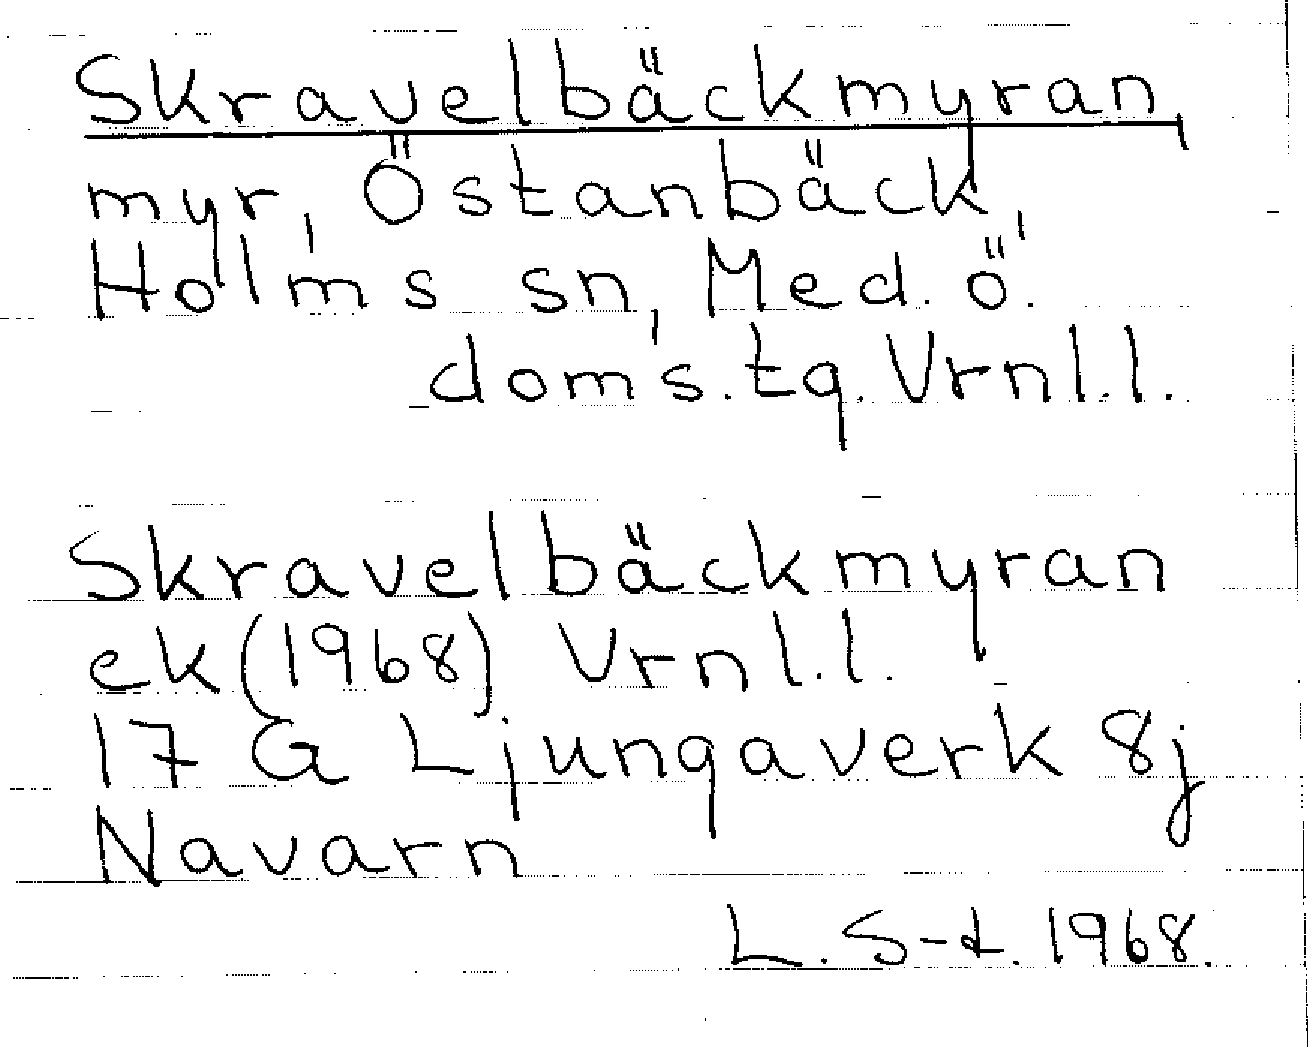 Skravelbäckmyran,
myr, Östanbäck,
Holms sn, Med. ö.
doms.tg. Vrnl.l.
Skravelbäckmyran
ek (1968) Vrnl.l.
17 G Ljungaverk 8j
Navarn
L. S-t. 1968.